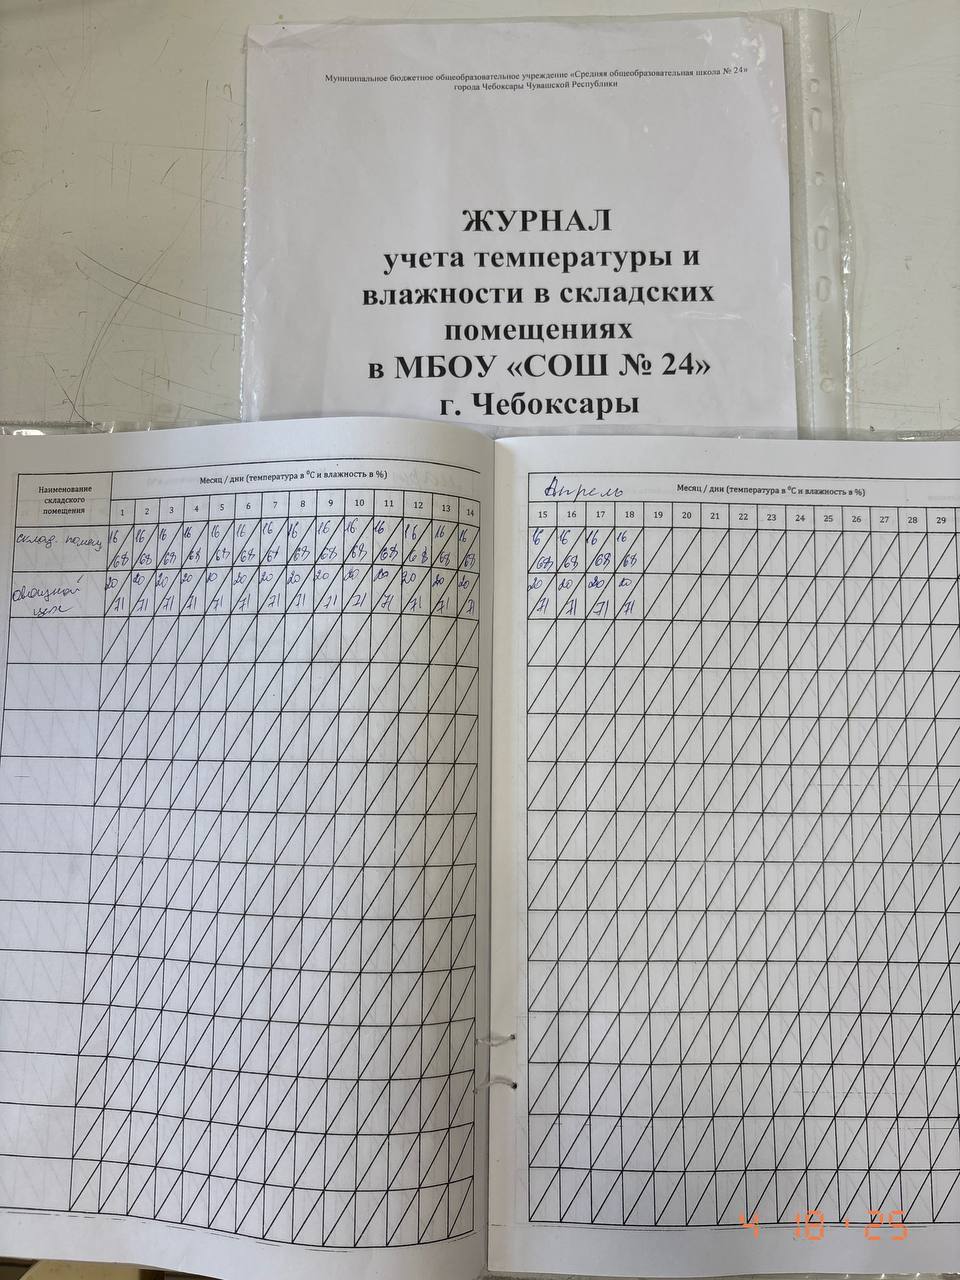 Муниципальное бюджетное общеобразовательное учреждение «Средняя общеобразовательная школа № 24»
города Чебоксары Чувашской Республики
ЖУРНАЛ
учета температуры и
влажности в складских
помещениях
в МБОУ «СОШ № 24»
г. Чебоксары
Наименование
складского
помещения
Месяц / дни (температура в °С и влажность в %)
1 2 3 4 5 6 7 8 9 10 11 12 13 14
склад. помещ 16 16 16 16 16 16 16 16 16 16 16 16 16 16
68 68 68 68 68 68 67 68 68 68 68 68 68 68
овощной 20 20 20 20 20 20 20 20 20 20 20 20 20 20
цех 71 71 71 71 71 71 71 71 71 71 71 71 71 71
Апрель Месяц / дни (температура в °С и влажность в %)
15 16 17 18 19 20 21 22 23 24 25 26 27 28 29
16 16 16 16
68 68 68 68
20 20 20 20
71 71 71 71
4 18 '25